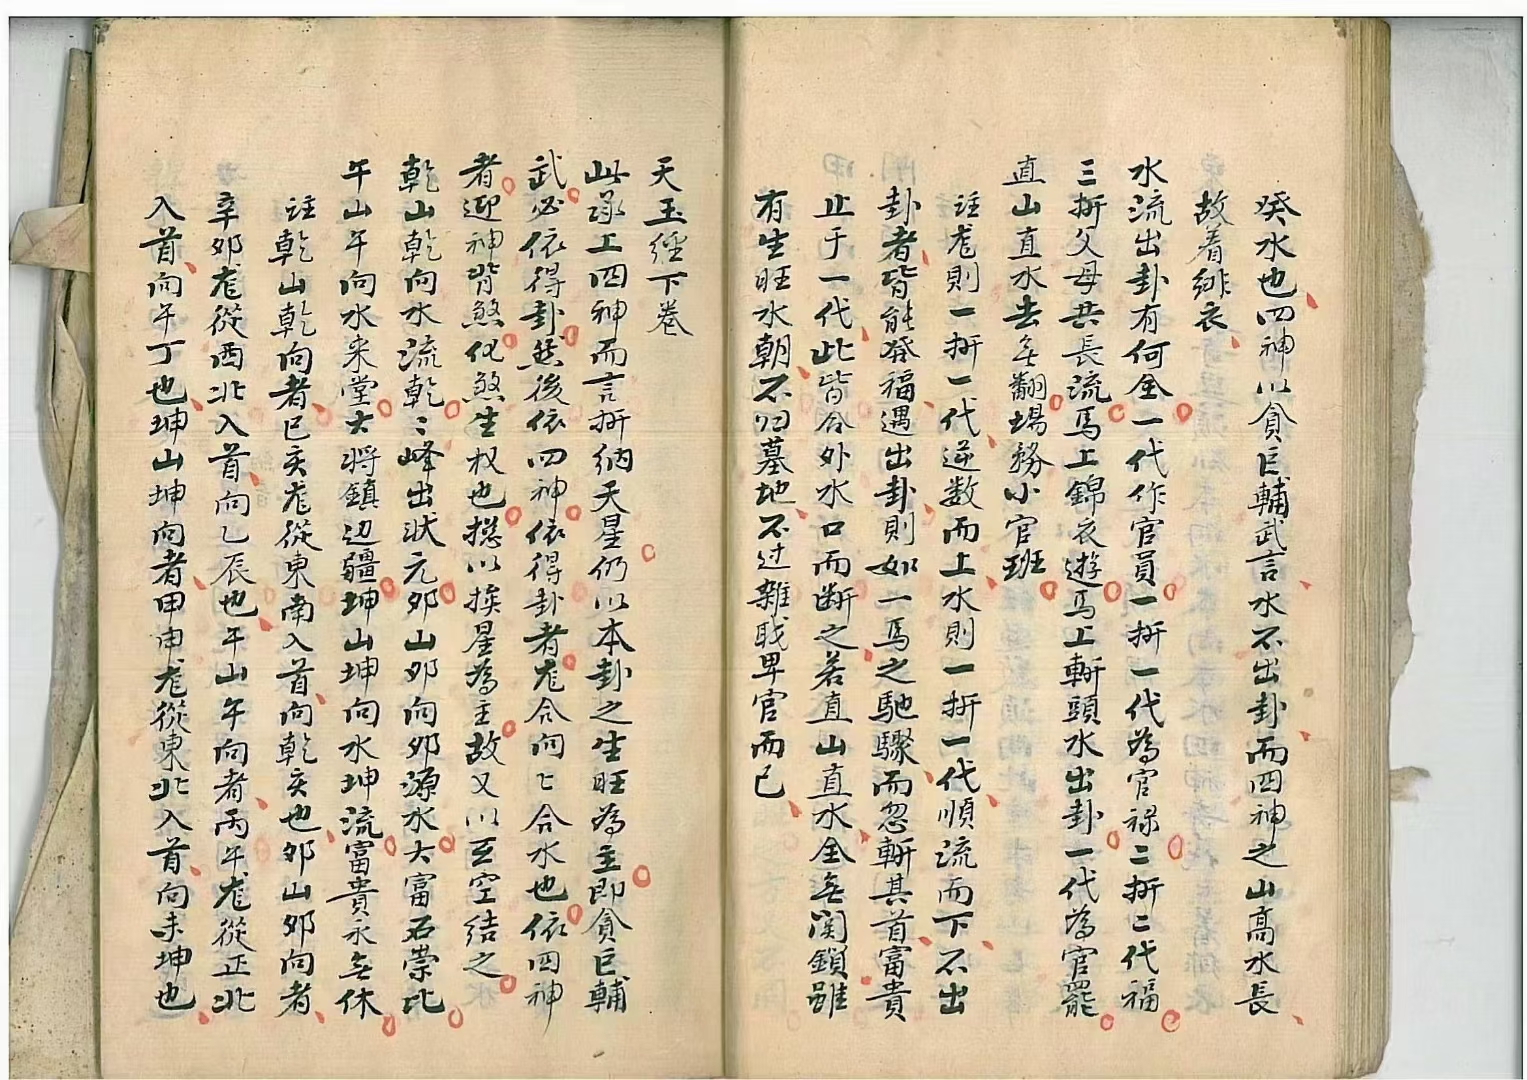 癸水也四神以貪巨輔武言水不出卦而四神之山高水長
故着緋衣
水流出卦有何全一代作官員一折一代為官禄二折二代福
三折父母共長流馬上錦衣遊馬上斬頭水出卦一代為官罷
直山直水去無翻場務小官班
註龙則一折一代逆数而上水則一折一代順流而下不出
卦者皆能發福遇出卦則如一馬之馳驟而忽斬其首富貴
止于一代此皆合外水口而断之若直山直水全無関鎖雖
有生旺水朝不归墓地不过雜职卑官而已
天玉經下卷
此承上四神而言折納天星仍以本卦之生旺為主即貪巨輔
武必依得卦然後依四神依得卦者龙合向〻合水也依四神
者迎神背煞化煞生权也揔以挨星為主故又以五空結之
乾山乾向水流乾〻峰出状元卯山卯向卯源水大富石崇比
午山午向水来堂大将鎮边疆坤山坤向水坤流富貴永無休
註乾山乾向者巳亥龙從東南入首向乾亥也卯山卯向者
辛卯龙從西北入首向乙辰也午山午向者丙午龙從正北
入首向午丁也坤山坤向者甲申龙從東北入首向未坤也